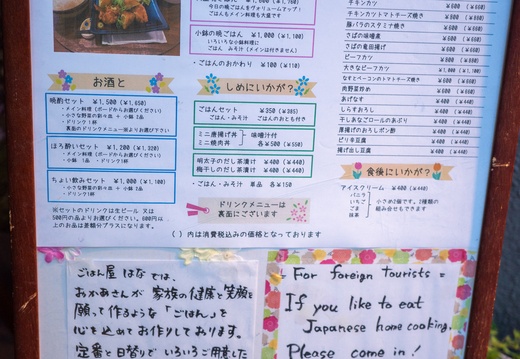 今日の晩ごはんをヴォリュームアップ!
ごはん&メイン料理も大盛です
小鉢の晩ごはん ¥1,000 (¥1,100)
いろいろな小鉢料理に
ごはん みそ汁 (メインは付きません)
・ごはんのおかわり ¥100 (¥110)
お酒と
晩酌セット ¥1,500 (¥1,650)
・メイン料理 (ボードからお選びください)
・小さな野菜の前々菜 + 小鉢 3品
・ドリンク1杯
裏面のドリンクメニュー横よりお選び下さい
ほろ酔いセット ¥1,200 (¥1,320)
・メイン料理 (ボードからお選びください)
・小鉢 1品 ・ドリンク1杯
ちょい飲みセット ¥1,000 (¥1,100)
・小さな野菜の前々菜 + 小鉢 2品
・ドリンク1杯
※セットのドリンクは生ビール 又は
500円の品よりお選びください。600円以
上のお品は差額分プラスになります。
しめにいかが?
ごはんセット ¥350 (¥385)
ごはん・みそ汁 ごはんのおとも付き
ミニ唐揚げ丼 + 味噌汁付
ミニ焼肉丼 各¥500 (¥550)
明太子のだし茶漬け ¥400 (¥440)
梅干しのだし茶漬け ¥400 (¥440)
・ごはん・みそ汁 単品 各¥150
ドリンクメニューは
裏面にございます
( ) 内は消費税込みの価格となっております
チキンカツ
チキンカツトマトチーズ焼き ¥800 (¥880)
豚バラのスタミナ焼き
さばの味噌煮
さばの竜田揚げ
ビーフカツ
大きなビーフカツ
なすとベーコンのトマトチーズ焼き
肉野菜炒め
あげなす ¥400 (¥440)
しらすおろし ¥400 (¥440)
干しあなごロールのあぶり ¥400 (¥440)
厚揚げのおろしポン酢 ¥400 (¥440)
ピリ辛豆腐 ¥400 (¥440)
揚げ出し豆腐 ¥400 (¥440)
食後にいかが?
アイスクリーム ¥400 (¥440)
バニラ
いちご
ごま
抹茶
小さめの2個です。2種類の
組み合せもできます
ごはん屋 はな では、
おかあさんが 家族の健康と笑顔を
願って作るような「ごはん」を
心を込めてお作りしております。
定番と日替りで いろいろご用意した
= For foreign Tourists =
If you like to eat
Japanese home cooking,
Please come in!